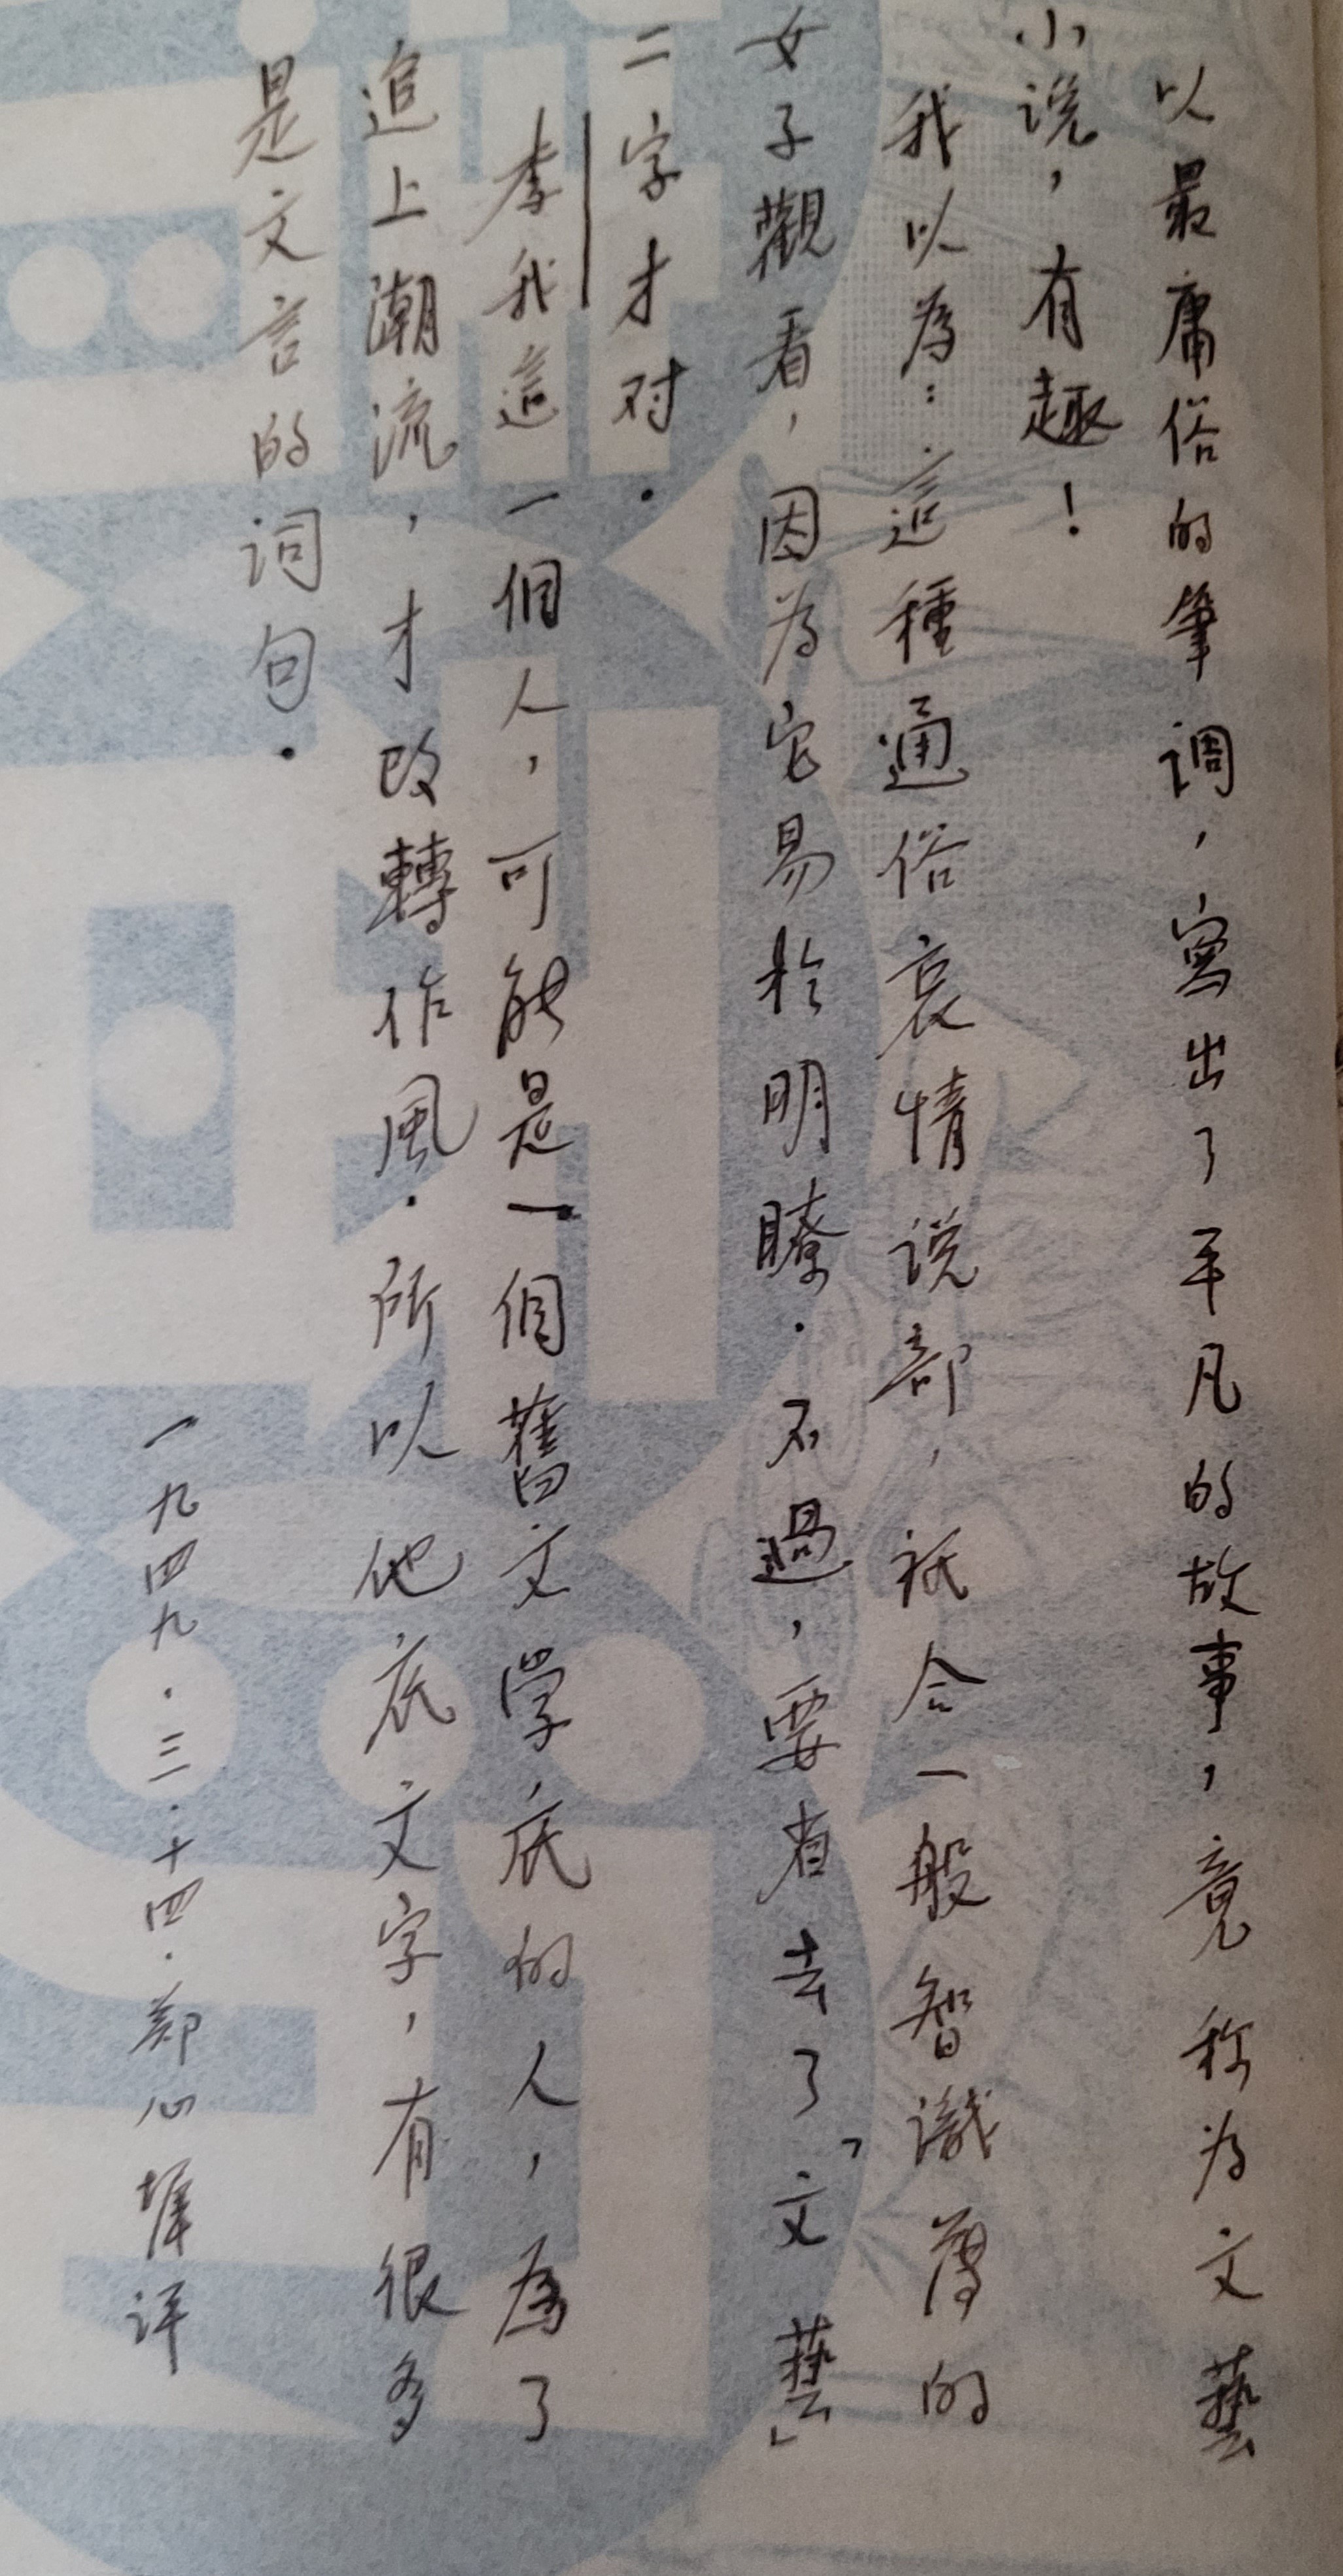 以最庸俗的筆调，寫出了平凡的故事，竟称为文藝
小说，有趣！
我以為：這種通俗哀情说部，祇合一般智識薄的
女子觀看，因为它易於明瞭．不過，要省去了「文藝」
二字才对．
李我這一個人，可能是一個舊文學底的人，為了
追上潮流，才改轉作風．所以他底文字，有很多
是文言的词句．
一九四九．三．十四．鄭心墀评